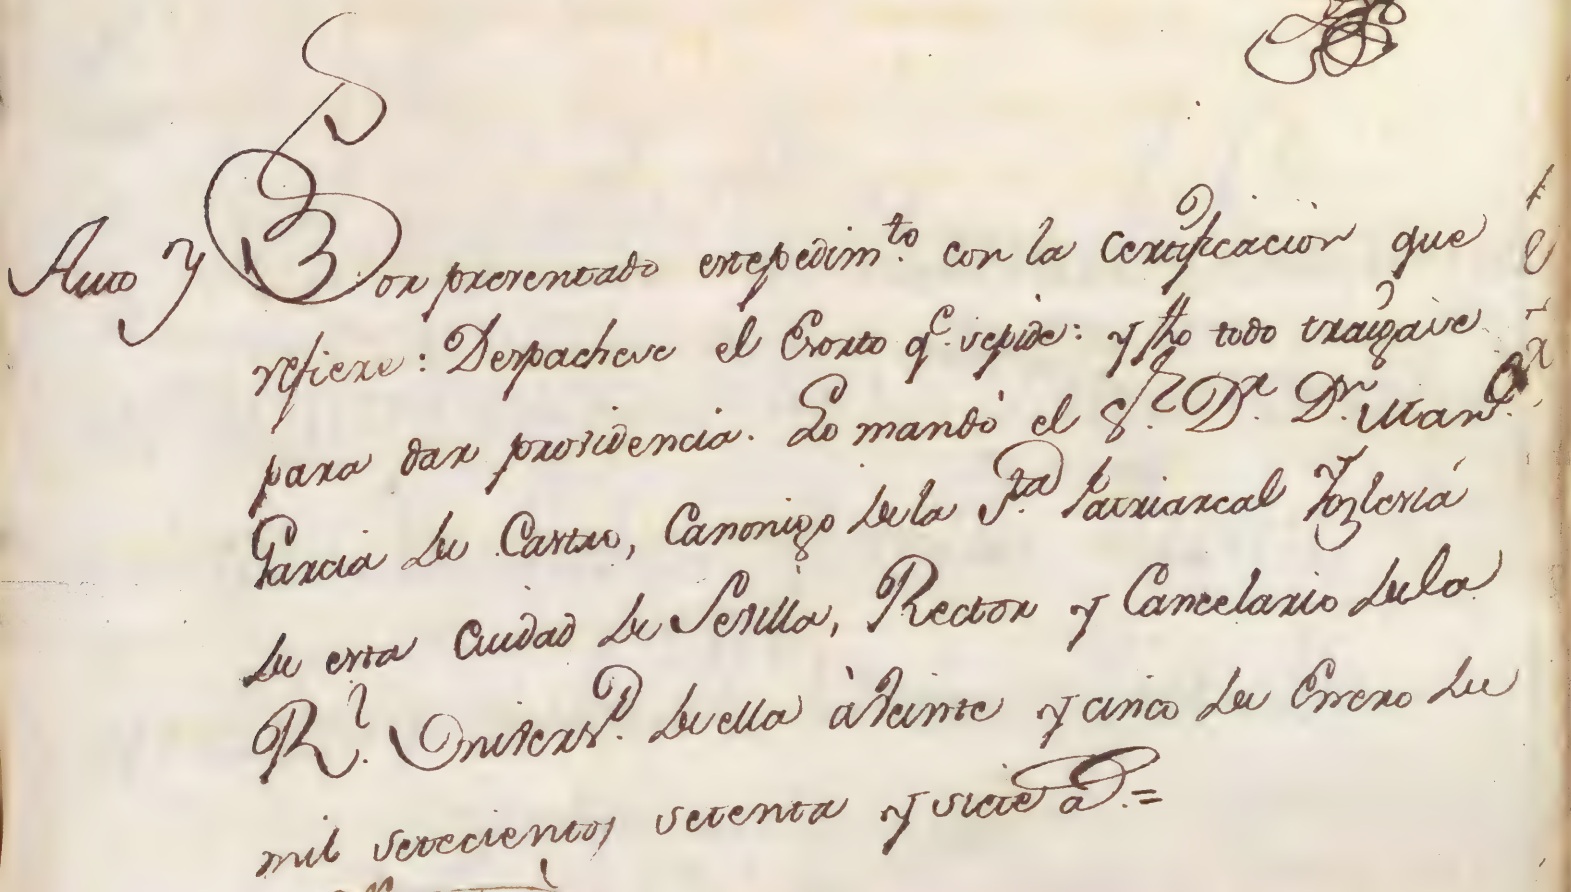 Auto y Por presentado estepedim.to con la certificacion que
refiere: Despachese el Exorto q.e sepide: y fho todo traigase
para dar providencia. Lo mandò el S.r D.r D.n Man.l
Garcia de Castro, Canonigo dela S.ta Patriarcal Yglesia
de esta Ciudad de Sevilla, Rector y Cancelario dela
R.l Univers.d de ella à Veinte y cinco de Enero de
mil setecientos setenta y siete a.s=